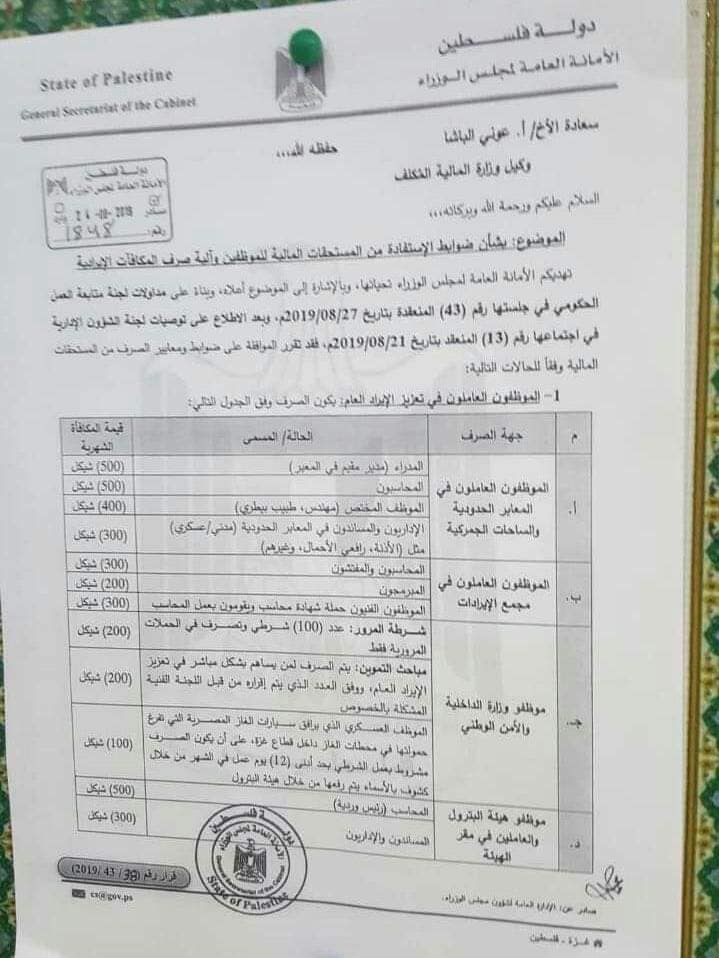 دولة فلسطين
الأمانة العامة لمجلس الوزراء
State of Palestine
General Secretariat of the Cabinet
سعادة الأخ/ أ. عوني الباشا
حفظه الله،،،
وكيل وزارة المالية المكلف
السلام عليكم ورحمة الله وبركاته،،،
دولة فلسطين
الأمانة العامة لمجلس الوزراء
صادر
2019
رقم: 1848
الموضوع: بشأن ضوابط الإستفادة من المستحقات المالية للموظفين وآلية صرف المكافآت الإيرادية
تهديكم الأمانة العامة لمجلس الوزراء تحياتها، وبالإشارة إلى الموضوع أعلاه، وبناءً على مداولات لجنة متابعة العمل
الحكومي في جلستها رقم (43) المنعقدة بتاريخ 2019/08/27م، وبعد الاطلاع على توصيات لجنة الشؤون الإدارية
في اجتماعها رقم (13) المنعقد بتاريخ 2019/08/21م، فقد تقرر الموافقة على ضوابط ومعايير الصرف من المستحقات
المالية وفقاً للحالات التالية:
1- الموظفون العاملون في تعزيز الإيراد العام: يكون الصرف وفق الجدول التالي:
م
جهة الصرف
الحالة/ المسمى
قيمة المكافأة
الشهرية
أ.
الموظفون العاملون في
المعابر الحدودية
والساحات الجمركية
المدراء (مدير مقيم في المعبر)
(500) شيكل
المحاسبون
(500) شيكل
الموظف المختص (مهندس، طبيب بيطري)
(400) شيكل
الإداريون والمساندون في المعابر الحدودية (مدني/عسكري)
مثل (الأذنة، رافعي الأحمال، وغيرهم)
(300) شيكل
ب.
الموظفون العاملون في
مجمع الإيرادات
المحاسبون والمفتشون
(300) شيكل
المبرمجون
(200) شيكل
الموظفون الفنيون حملة شهادة محاسب ويقومون بعمل المحاسب
(300) شيكل
جـ.
موظفو وزارة الداخلية
والأمن الوطني
شرطة المرور: عدد (100) شرطي وتصرف في الحملات
المرورية فقط
(200) شيكل
مباحث التموين: يتم الصرف لمن يساهم بشكل مباشر في تعزيز
الإيراد العام، ووفق العدد الذي يتم إقراره من قبل اللجنة الفنية
المشكلة بالخصوص
(200) شيكل
الموظف العسكري الذي يرافق سيارات الغاز المصرية التي تفرغ
حمولتها في محطات الغاز داخل قطاع غزة، على أن يكون الصرف
مشروط بعمل الشرطي بحد أدنى (12) يوم عمل في الشهر من خلال
كشوف بالأسماء يتم رفعها من خلال هيئة البترول
(100) شيكل
د.
موظفو هيئة البترول
والعاملين في مقر
الهيئة
المحاسب (رئيس وردية)
(500) شيكل
المساندون والإداريون
(300) شيكل
دولة فلسطين
الأمانة العامة لمجلس الوزراء
General Secretariat of the Cabinet
State of Palestine
قرار رقم (38/ 43 /2019)
cs@gov.ps
صادر عن: الإدارة العامة لشؤون مجلس الوزراء.
غزة - فلسطين